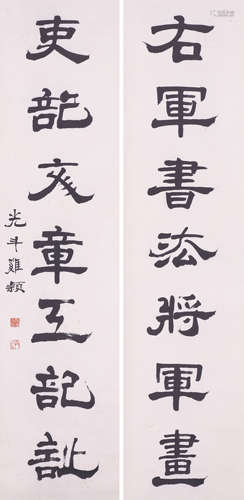 右軍書法將軍畫
吏部文章工部詩
光斗